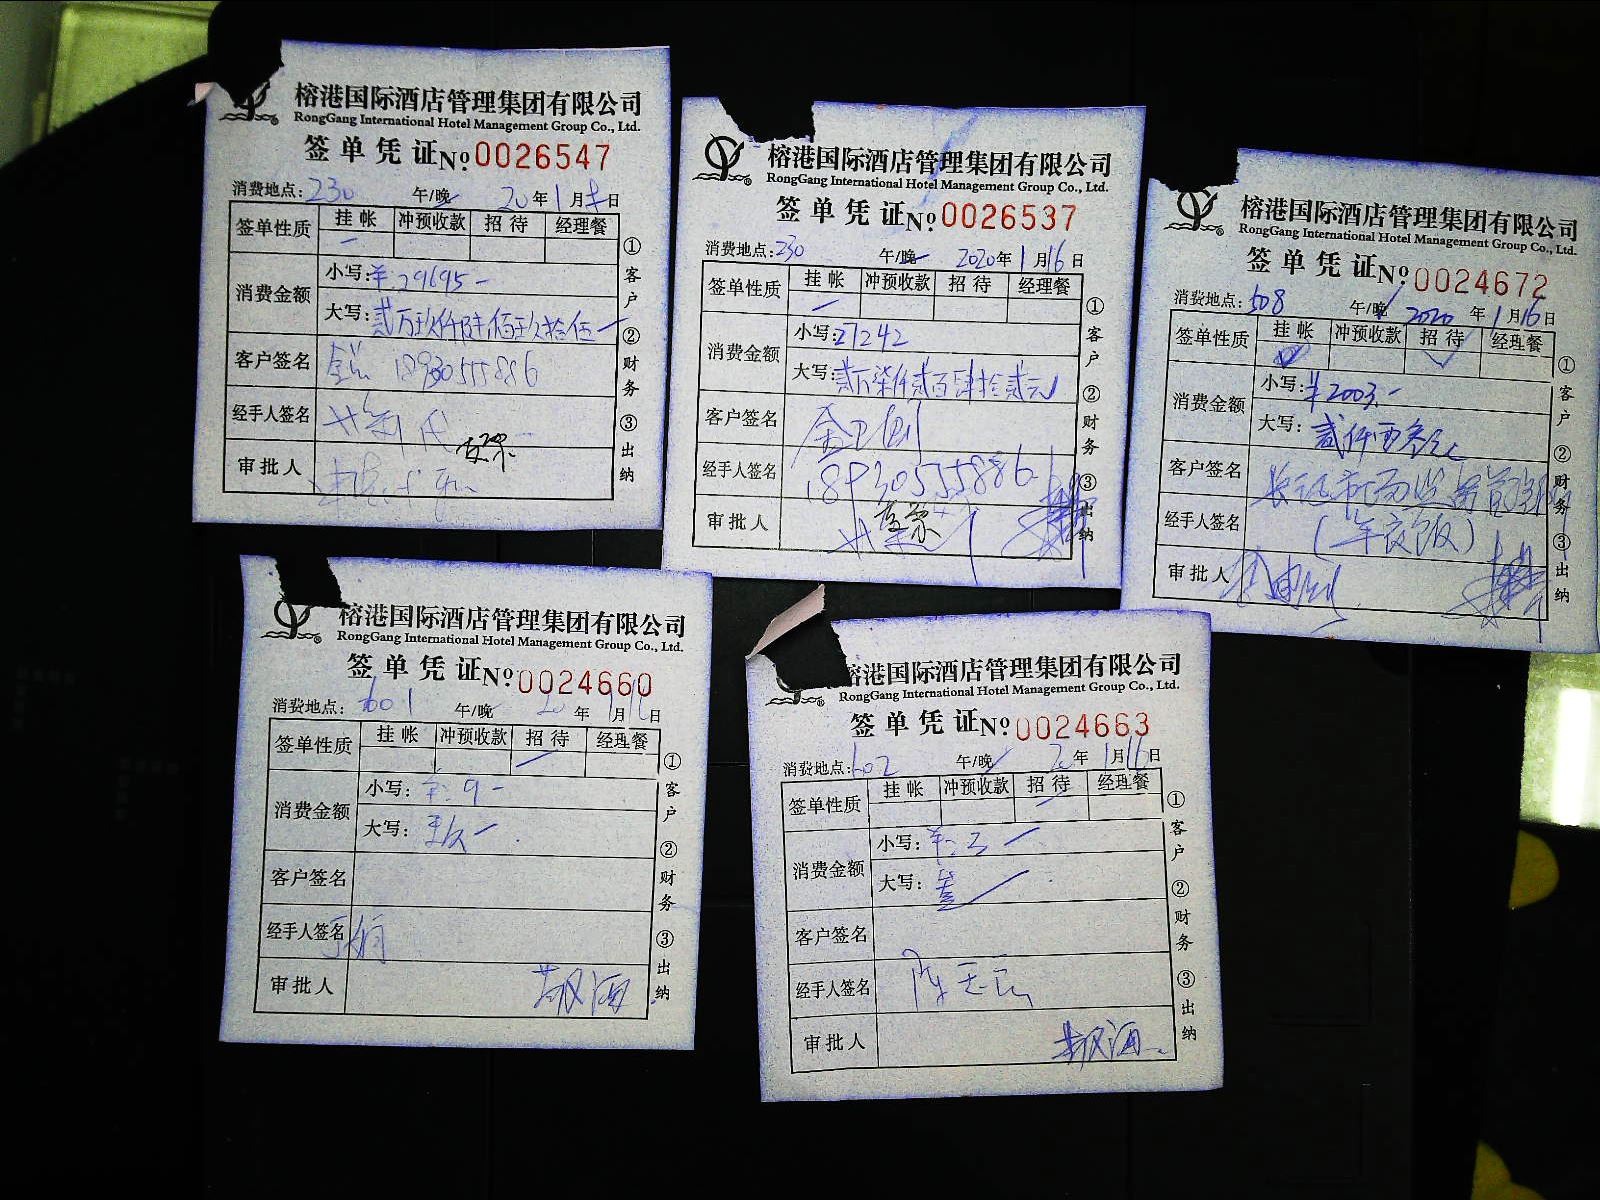 榕港国际酒店管理集团有限公司
RongGang International Hotel Management Group Co., Ltd.
签单凭证 No 0026547
消费地点: 230 午/晚 20年1月日
签单性质 挂帐 冲预收款 招待 经理餐
消费金额 小写: ¥:29695-
大写: 贰万玖仟陆佰玖拾伍
客户签名 18930555886
经手人签名
审批人
①客户 ②财务 ③出纳
榕港国际酒店管理集团有限公司
RongGang International Hotel Management Group Co., Ltd.
签单凭证 No 0026537
消费地点: 230 午/晚 2020年1月16日
签单性质 挂帐 冲预收款 招待 经理餐
消费金额 小写: 27242
大写: 贰万柒仟贰百肆拾贰元
客户签名
经手人签名 18930555886
审批人
①客户 ②财务 ③出纳
榕港国际酒店管理集团有限公司
RongGang International Hotel Management Group Co., Ltd.
签单凭证 No 0024672
消费地点: 508 午/晚 2020年1月16日
签单性质 挂帐 冲预收款 招待 经理餐
消费金额 小写: ¥2003.-
大写: 贰仟零叁元
客户签名
经手人签名 (年夜饭)
审批人
①客户 ②财务 ③出纳
榕港国际酒店管理集团有限公司
RongGang International Hotel Management Group Co., Ltd.
签单凭证 No 0024660
消费地点: 601 午/晚 20年月日
签单性质 挂帐 冲预收款 招待 经理餐
消费金额 小写: ¥:9-
大写:
客户签名
经手人签名
审批人
①客户 ②财务 ③出纳
榕港国际酒店管理集团有限公司
RongGang International Hotel Management Group Co., Ltd.
签单凭证 No 0024663
消费地点: 602 午/晚 20年1月16日
签单性质 挂帐 冲预收款 招待 经理餐
消费金额 小写: ¥:3
大写:
客户签名
经手人签名
审批人
①客户 ②财务 ③出纳